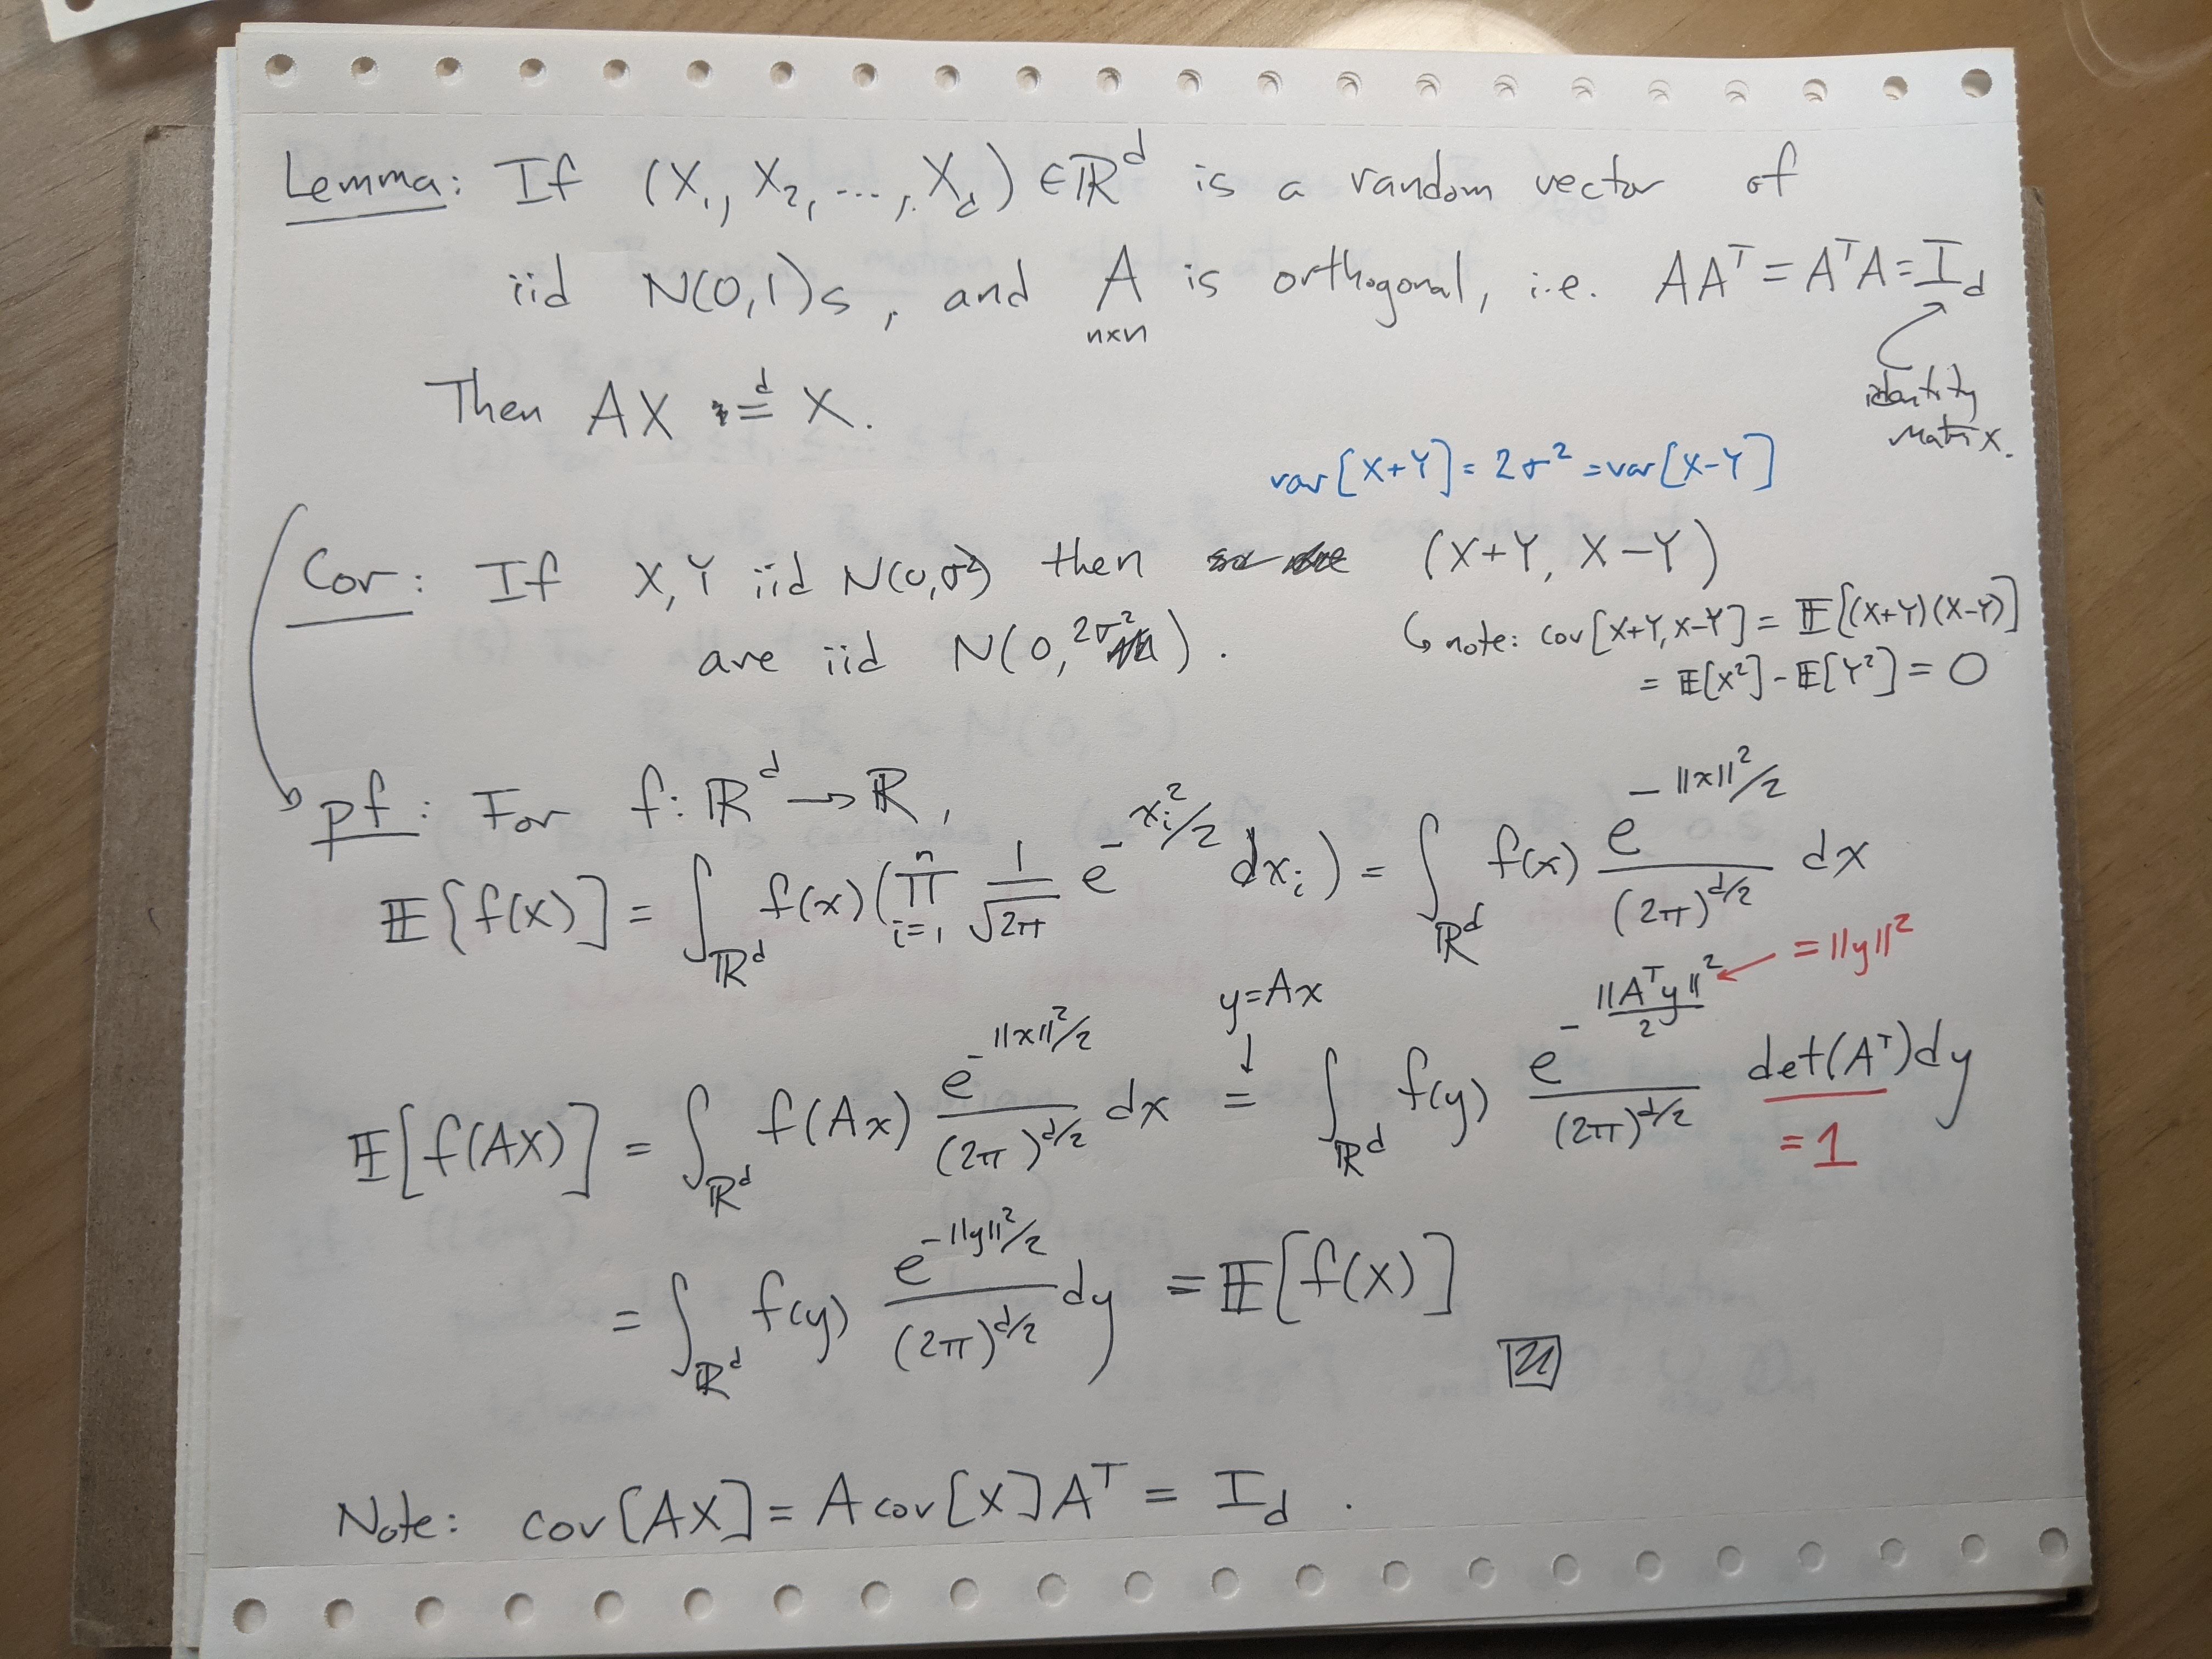 Lemma: If (X₁, X₂, ..., X_d) ∈ ℝ^d is a random vector of
iid N(0,1)s, and A is orthogonal, i.e. AAᵀ = AᵀA = I_d
n×n
identity
matrix.
Then AX =^d X.
var[X+Y] = 2σ² = var[X-Y]
Cor: If X,Y iid N(0,σ²) then (X+Y, X-Y)
are iid N(0, 2σ²).
note: cov[X+Y, X-Y] = 𝔼[(X+Y)(X-Y)]
= 𝔼[X²] - 𝔼[Y²] = 0
pf: For f: ℝ^d → ℝ,
𝔼[f(X)] = ∫_{ℝ^d} f(x) (∏_{i=1}^n 1/√2π e^{-x_i²/2} dx_i) = ∫_{ℝ^d} f(x) e^{-||x||²/2}/(2π)^{d/2} dx
y=Ax
= ||y||²
𝔼[f(AX)] = ∫_{ℝ^d} f(Ax) e^{-||x||²/2}/(2π)^{d/2} dx = ∫_{ℝ^d} f(y) e^{-||Aᵀy||²/2}/(2π)^{d/2} det(Aᵀ)dy
= 1
= ∫_{ℝ^d} f(y) e^{-||y||²/2}/(2π)^{d/2} dy = 𝔼[f(X)]
Note: cov[AX] = A cov[X] Aᵀ = I_d.